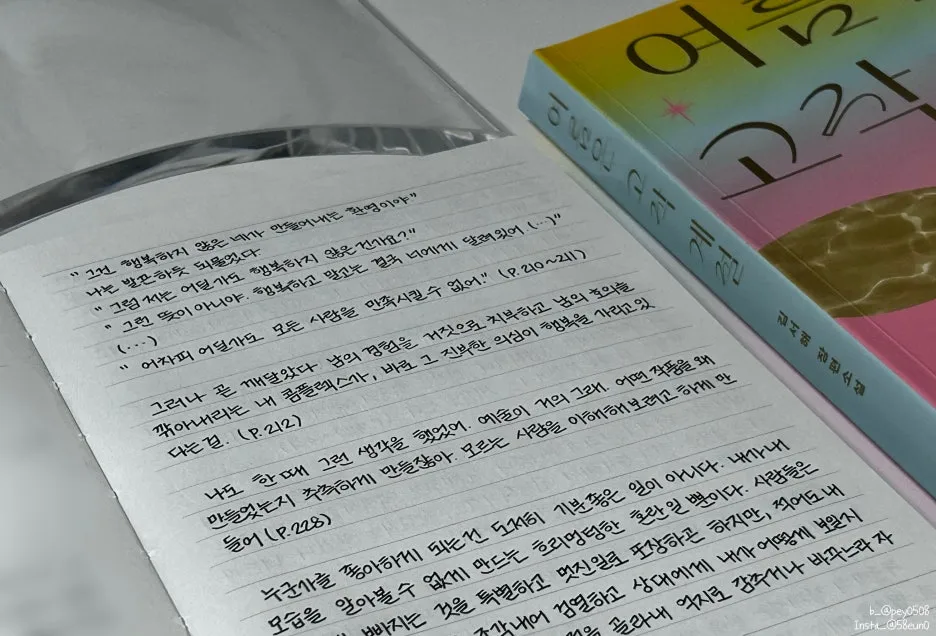 " 그건 행복하지 않은 네가 만들어내는 환영이야"
나는 발끈하듯 되물었다
" 그럼 저는 어딜 가도 행복하지 않은 건가요?"
" 그런 뜻이 아니야. 행복하고 말고는 결국 너에게 달려있어 (…)"
(…)
" 어차피 어딜가도 모든 사람을 만족시킬 수 없어." (P.210~211)
그러나 곧 깨달았다 남의 경험을 거짓으로 치부하고 남의 호의를
깎아내리는 내 콤플렉스가, 바로 그 진부한 의심이 행복을 가리고 있
다는 걸. (P.212)
나도 한때 그런 생각을 했었어. 예술이 거의 그래. 어떤 작품을 왜
만들었는지 추측하게 만들잖아. 모르는 사람을 이해해 보려고 하게 만
들어 (P.228)
누군가를 좋아하게 되는건 도저히 기분좋은 일이 아니다. 내가 내
모습을 알아볼 수 없게 만드는 흐리멍텅한 혼란일 뿐이다. 사람들은
빠지는 것을 특별하고 멋진일로 포장하곤 하지만, 적어도 내
조각내어 검열하고 상대에게 내가 어떻게 보일지
골라내 억지로 감추거나 바꾸느라 자
여름은
고작
여름은 고작 계절
김서해 장편소설
b_@pey0508
Insta_@58eun0